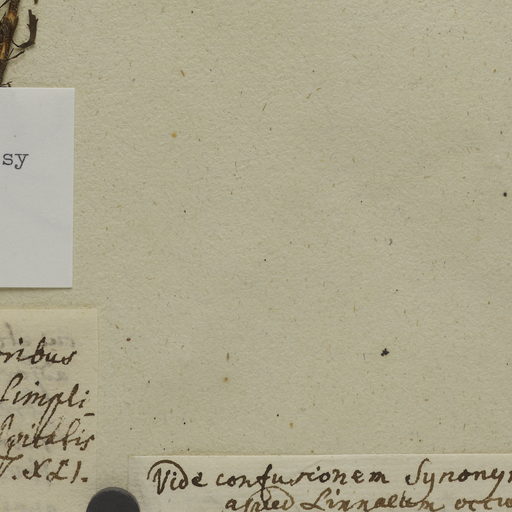 sy
oribus
Simpli
T. XLI.
Vide confusionem Synonym
apud Linnaeum occu